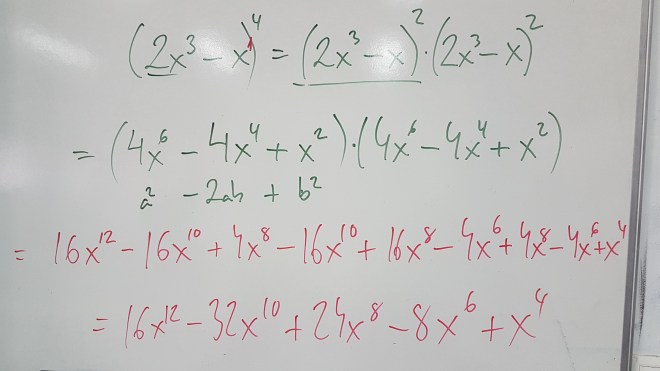 (2x³ - x)⁴ = (2x³ - x)² · (2x³ - x)²
= (4x⁶ - 4x⁴ + x²) · (4x⁶ - 4x⁴ + x²)
a² - 2ab + b²
= 16x¹² - 16x¹⁰ + 4x⁸ - 16x¹⁰ + 16x⁸ - 4x⁶ + 4x⁸ - 4x⁶ + x⁴
= 16x¹² - 32x¹⁰ + 24x⁸ - 8x⁶ + x⁴